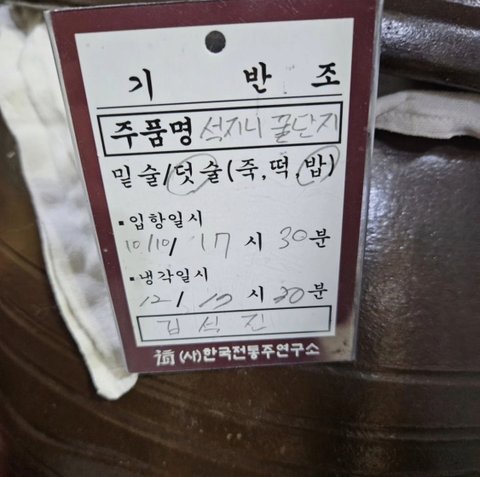 기 반 조
주품명 석지니 꿀단지
밑술/덧술(죽,떡,밥)
▪입항일시
10/10/ 17 시 30분
▪냉각일시
12/ 시 30분
김석진
(사)한국전통주연구소